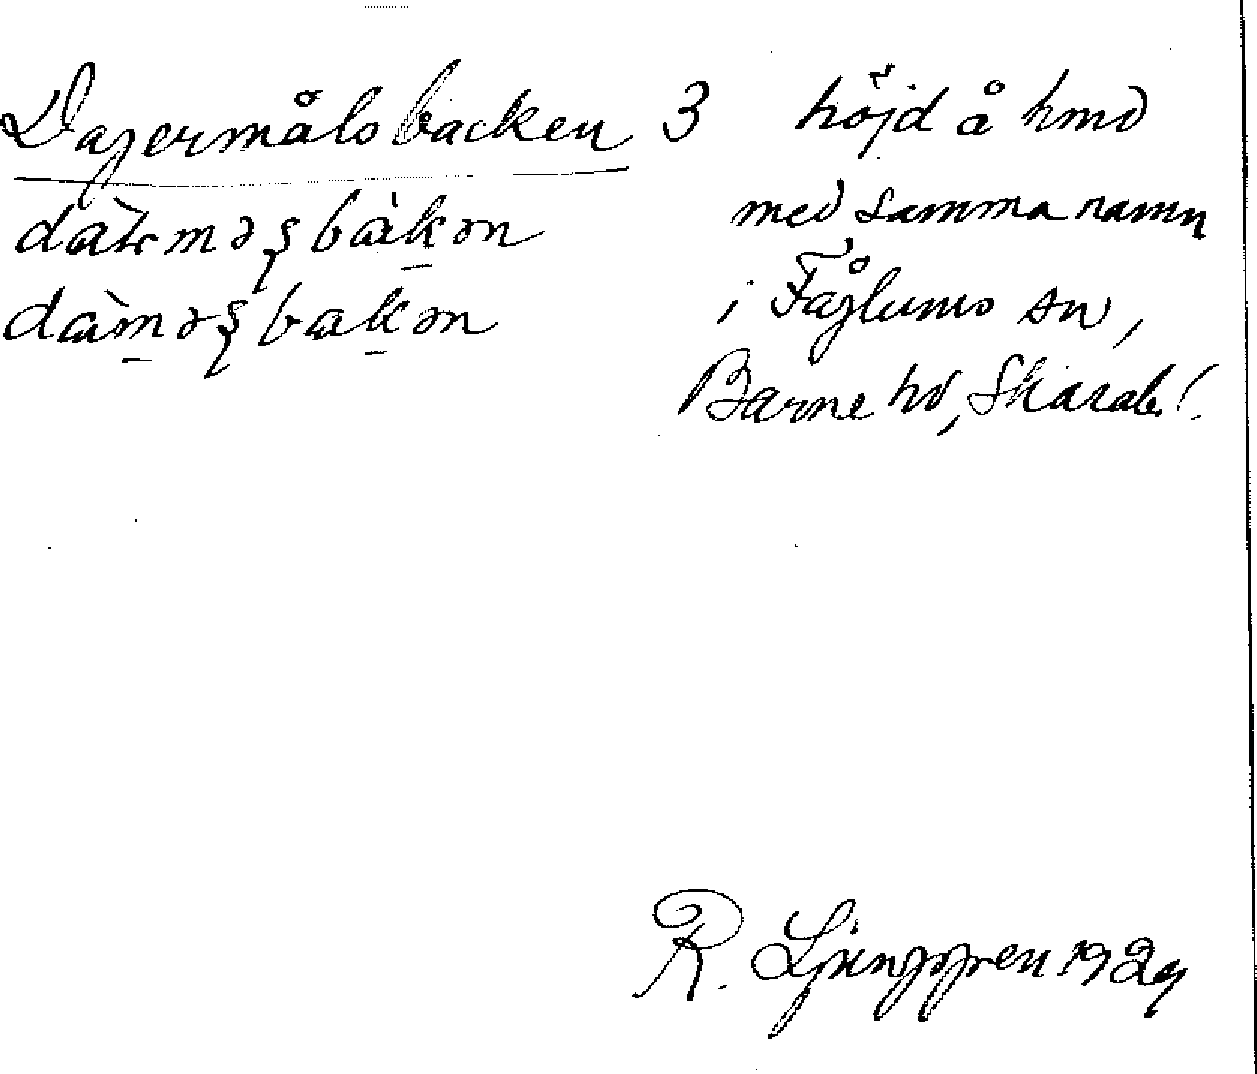 Dagermålsbacken 3 höjd å hmd
med samma namn
i Fåglums sn,
Barne hd, Skarab.l.
dàməʂbakən
R. Ljunggren 1929